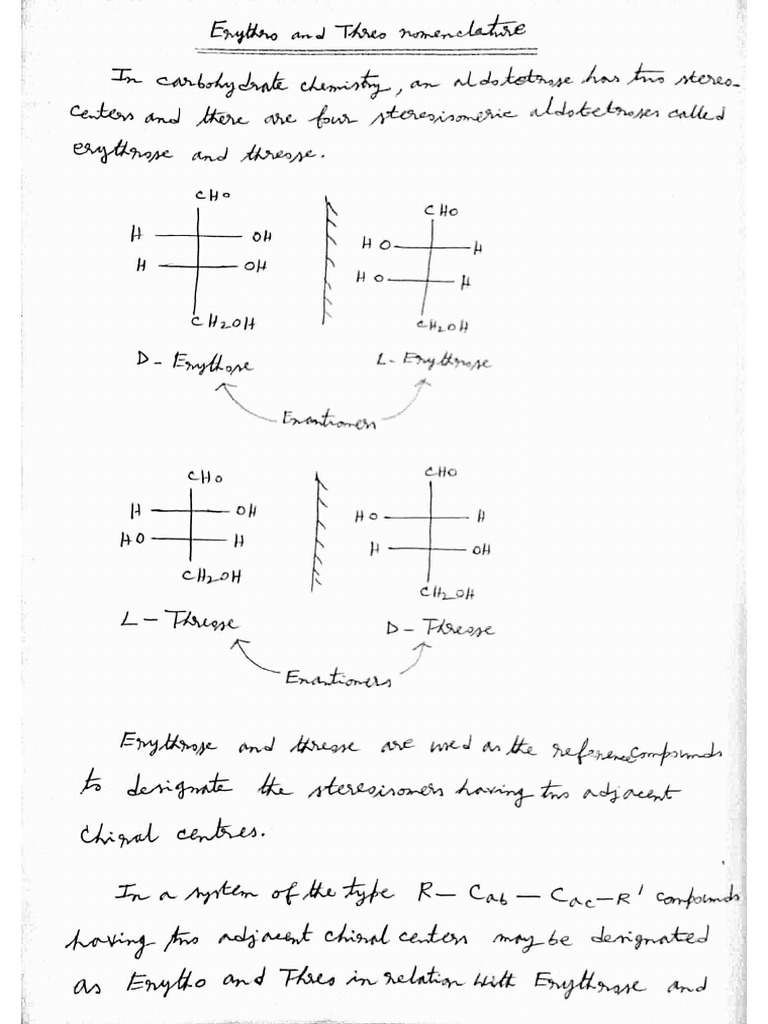 Erythro and Threo nomenclature
In carbohydrate chemistry, an aldotetrose has two stereo-
centers and there are four stereoisomeric aldotetroses called
erythrose and threose.
CHO CHO
H OH HO H
H OH HO H
CH2OH CH2OH
D- Erythose L- Erythrose
Enantiomers
CHO CHO
H OH HO H
HO H H OH
CH2OH CH2OH
L- Threose D- Threose
Enantiomers
Erythrose and threose are used as the reference compounds
to designate the stereoisomers having two adjacent
Chiral centres.
In a system of the type R- Cab - Cac-R' compounds
having two adjacent chiral centers may be designated
as Erytho and Threo in relation with Erythrose and